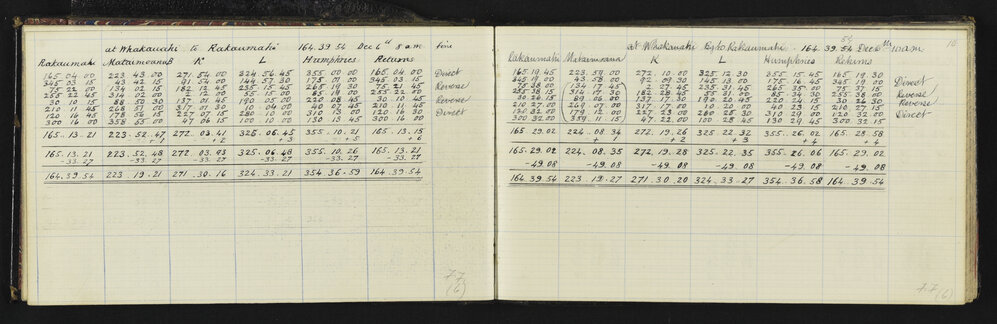 at Whakauahi to Rakaumahi 164.39.54 Dec 6th 8 am fine
Rakaumahi Matumeana K L Humphries Returns
165 04 00 223 43 00 271 54 00 324 56 45 355 00 00 165 04 00 Direct
345 03 15 43 42 15 91 54 00 144 57 30 175 01 00 345 03 15
75 22 00 134 02 15 182 12 45 235 15 45 265 19 30 75 21 45 Reverse
255 22 45 314 02 00 2 12 00 55 15 00 85 19 00 255 22 00
30 10 15 88 50 30 137 01 45 190 05 00 220 08 45 30 10 45 Reverse
210 11 45 268 51 00 317 01 30 10 04 00 40 07 45 210 11 45
120 16 45 178 56 15 227 07 15 280 10 00 310 13 00 120 16 30 Direct
300 16 00 358 55 00 47 06 15 100 10 00 130 13 45 300 16 00
165.13.21 223.52.47 272.03.41 325.06.45 355.10.21 165.13.15
+1 +2 +3 +5 +6
165.13.21 223.52.48 272.03.43 325.06.48 355.10.26 165.13.21
-33.27 -33.27 -33.27 -33.27 -33.27 -33.27
164.39.54 223.19.21 271.30.16 324.33.21 354.36.59 164.39.54
77
(6)
10
at Whakauahi to Rakaumahi 164.39.54 Dec 6th 10 am
Rakaumahi Matumeana K L Humphries Returns
165 19 45 223 59 00 272 10 00 325 12 30 355 15 45 165 19 30 Direct
345 19 00 43 58 00 92 09 30 145 13 00 175 16 45 345 19 00
75 38 00 134 17 45 2 27 45 235 31 45 265 35 00 75 37 15 Reverse
255 38 15 314 17 30 182 28 00 55 31 00 85 34 30 255 38 00
30 26 15 89 06 00 137 17 30 190 20 45 220 24 15 30 26 30 Reverse
210 27 00 269 07 00 317 17 00 10 20 00 40 23 15 210 27 15
120 32 00 179 12 00 227 23 00 280 25 30 310 29 00 120 32 00 Direct
300 32 00 359 11 15 47 22 00 100 25 45 130 29 45 300 32 15
165 29.02 224.08.34 272.19.26 325 22.32 355.26.02 165.28.58
+1 +2 +3 +4 +4
165.29.02 224.08.35 272.19.28 325.22.35 355.26.06 165.29.02
-49.08 -49.08 -49.08 -49.08 -49.08 -49.08
164.39.54 223.19.27 271.30.20 324.33.27 354.36.58 164.39.54
77
(6)